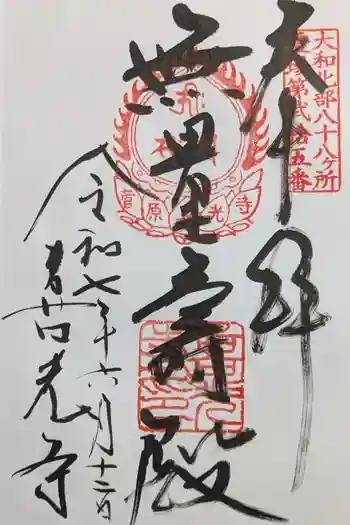 大和北部八十八ヶ所
第弐拾五番
奉拝
無量壽殿
菅原 光寺
令和七年六月十二日
喜光寺